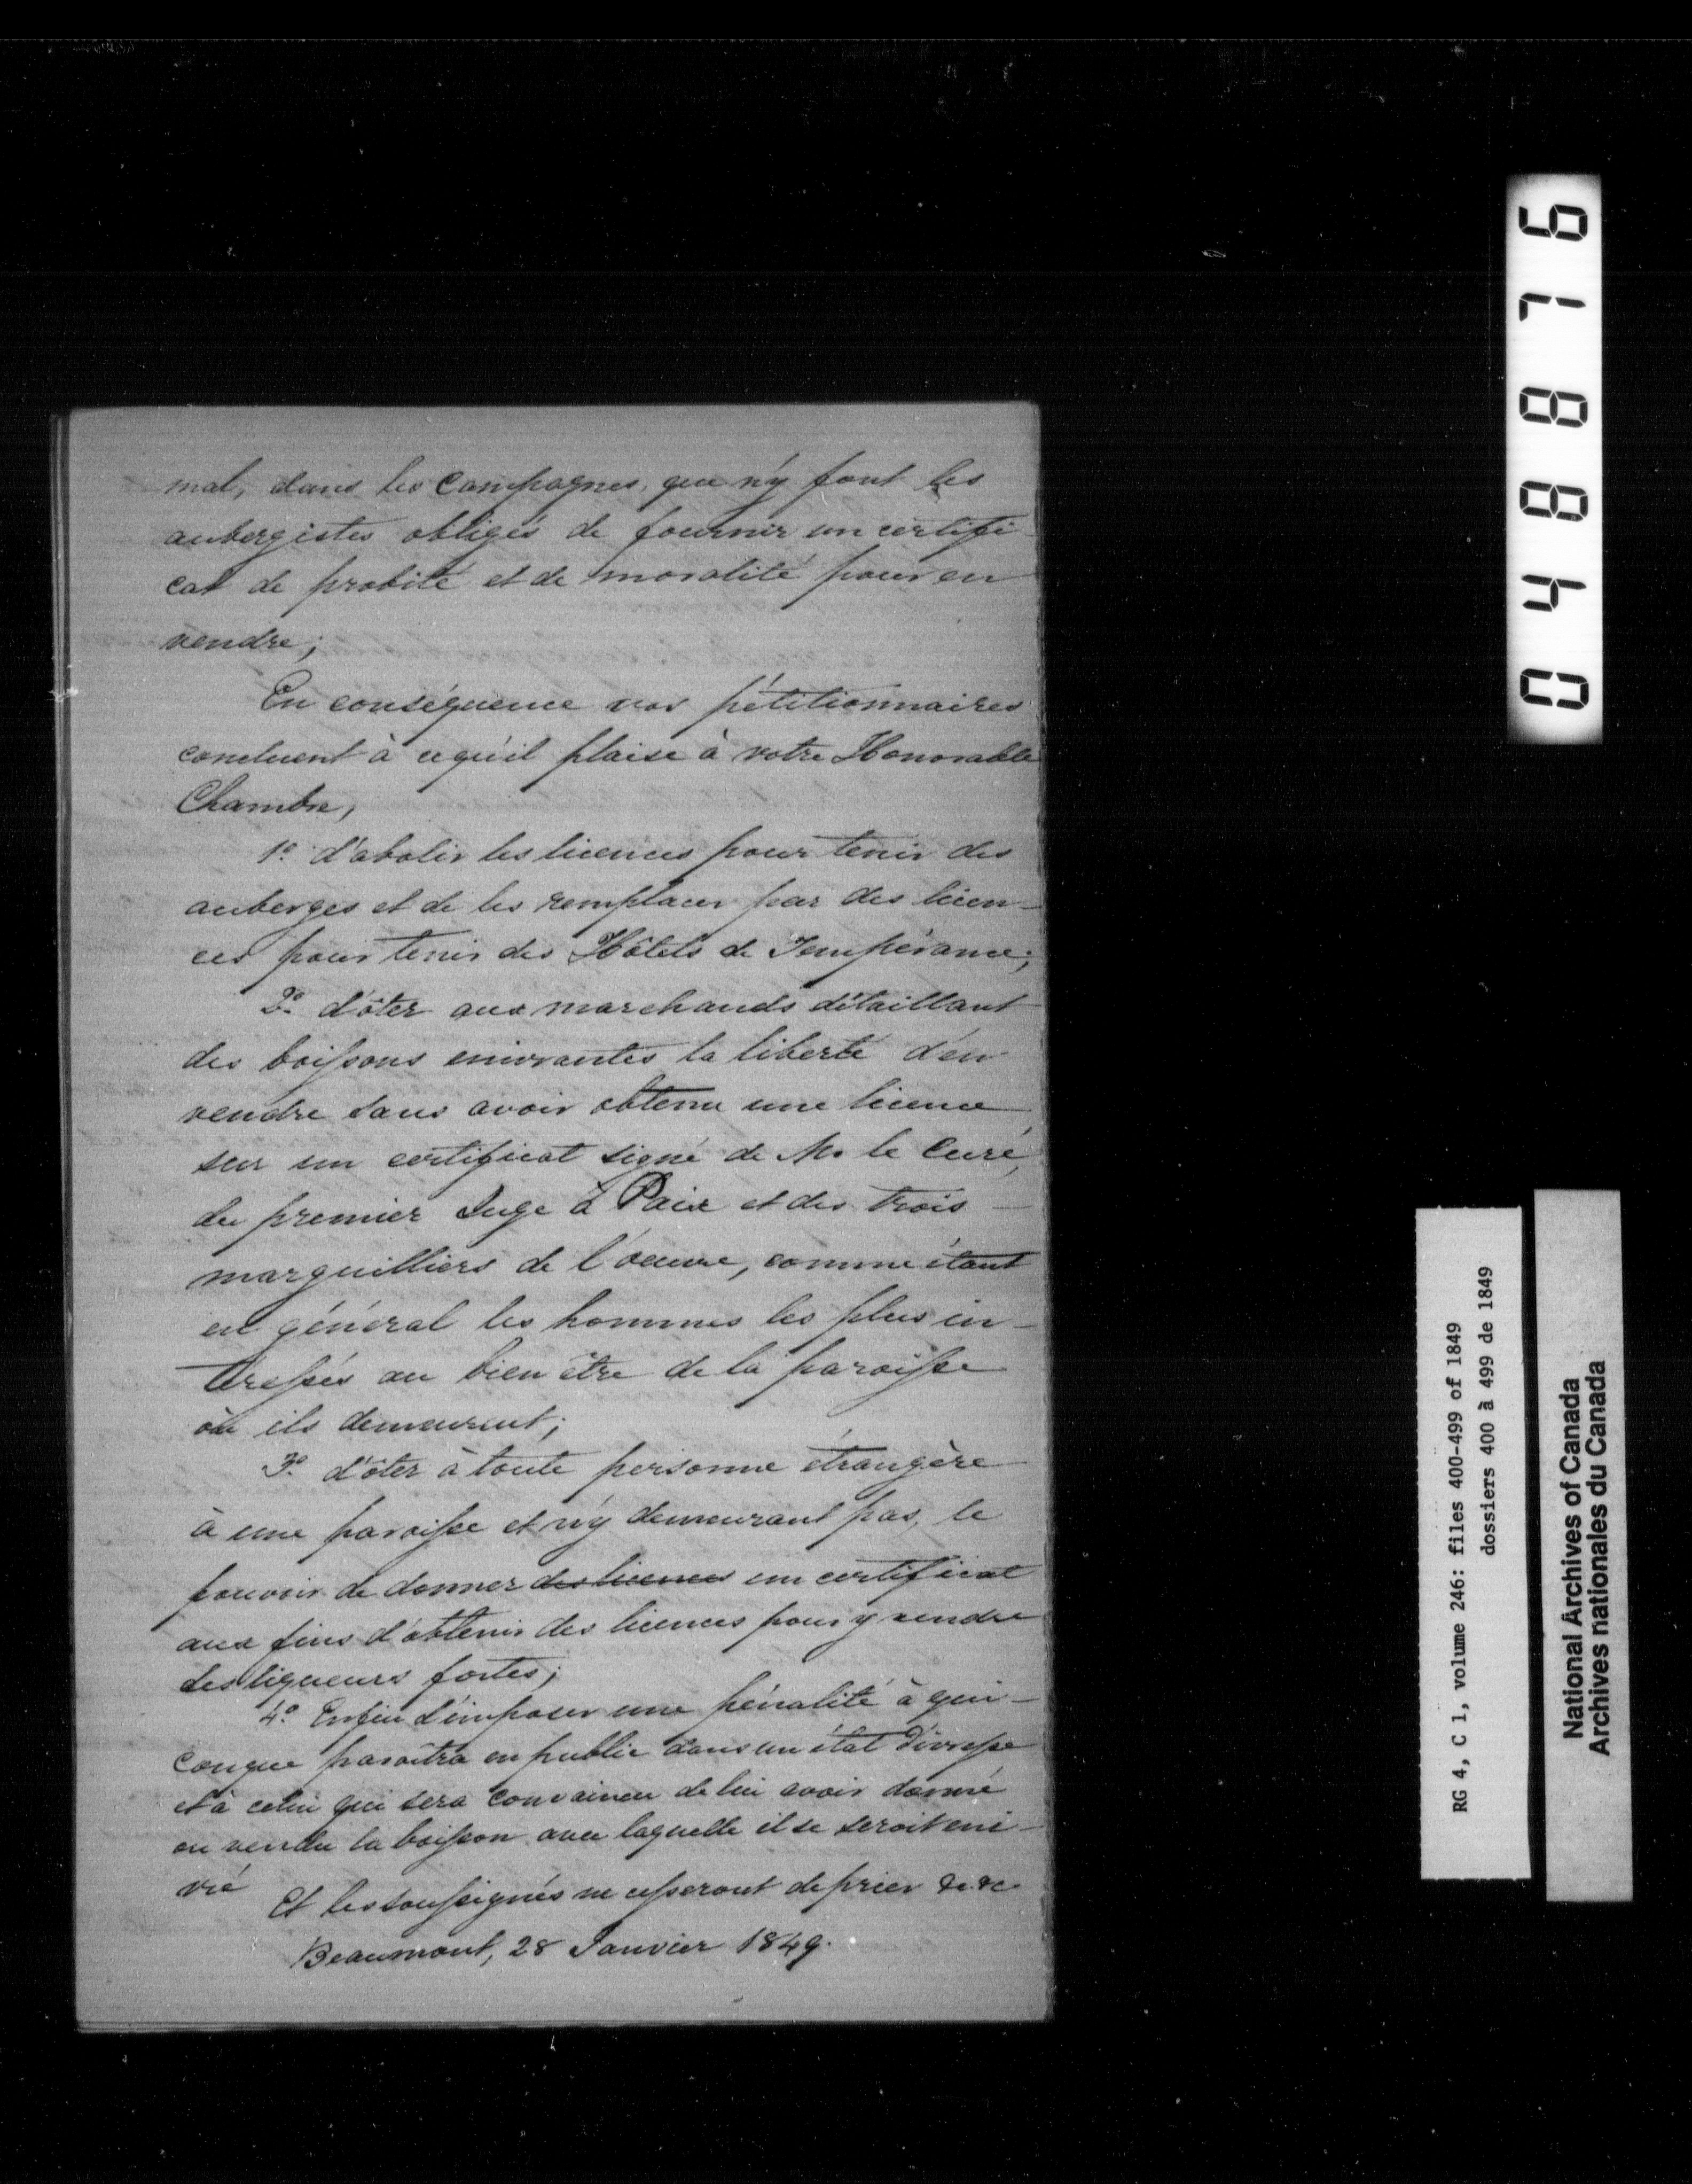 mal, dans les Campagnes, que n'y font les
aubergistes obligés de fournir un certifi-
cat de probité et de moralité pour en
vendre;
En conséquence vos pétitionnaires
concluent à ce qu'il plaise à votre Honorable
Chambre,
1º. d'abolir les licences pour tenir des
auberges et de les remplacer par des licen-
ces pour tenir des Hôtels de Tempérance;
2º. d'ôter aux marchands détaillant
des boissons enivrantes la liberté d'en
vendre sans avoir obtenu une licence
sur un certificat signé de Mr. le Curé,
du premier Juge à Paix et des trois
marguilliers de l'oeuvre, comme étant
en général les hommes les plus in-
tressés au bien être de la paroisse
où ils demeurent;
3º. d'ôter à toute personne étrangère
à une paroisse et n'y demeurant pas, le
pouvoir de donner des licences un certificat
aux fins d'obtenir des licences pour y vendre
des liqueurs fortes;
4º. Enfin d'imposer une pénalité à qui-
conque paroîtra en public dans un état d'ivresse
et à celui qui sera convaincu de lui avoir donné
ou vendu la boisson avec laquelle il se seroit eni-
vré
Et les soussignés ne cesseront de prier &c. &c.
Beaumont, 28 Janvier 1849.
048876
RG 4, C 1, volume 246: files 400-499 of 1849
dossiers 400 à 499 de 1849
National Archives of Canada
Archives nationales du Canada